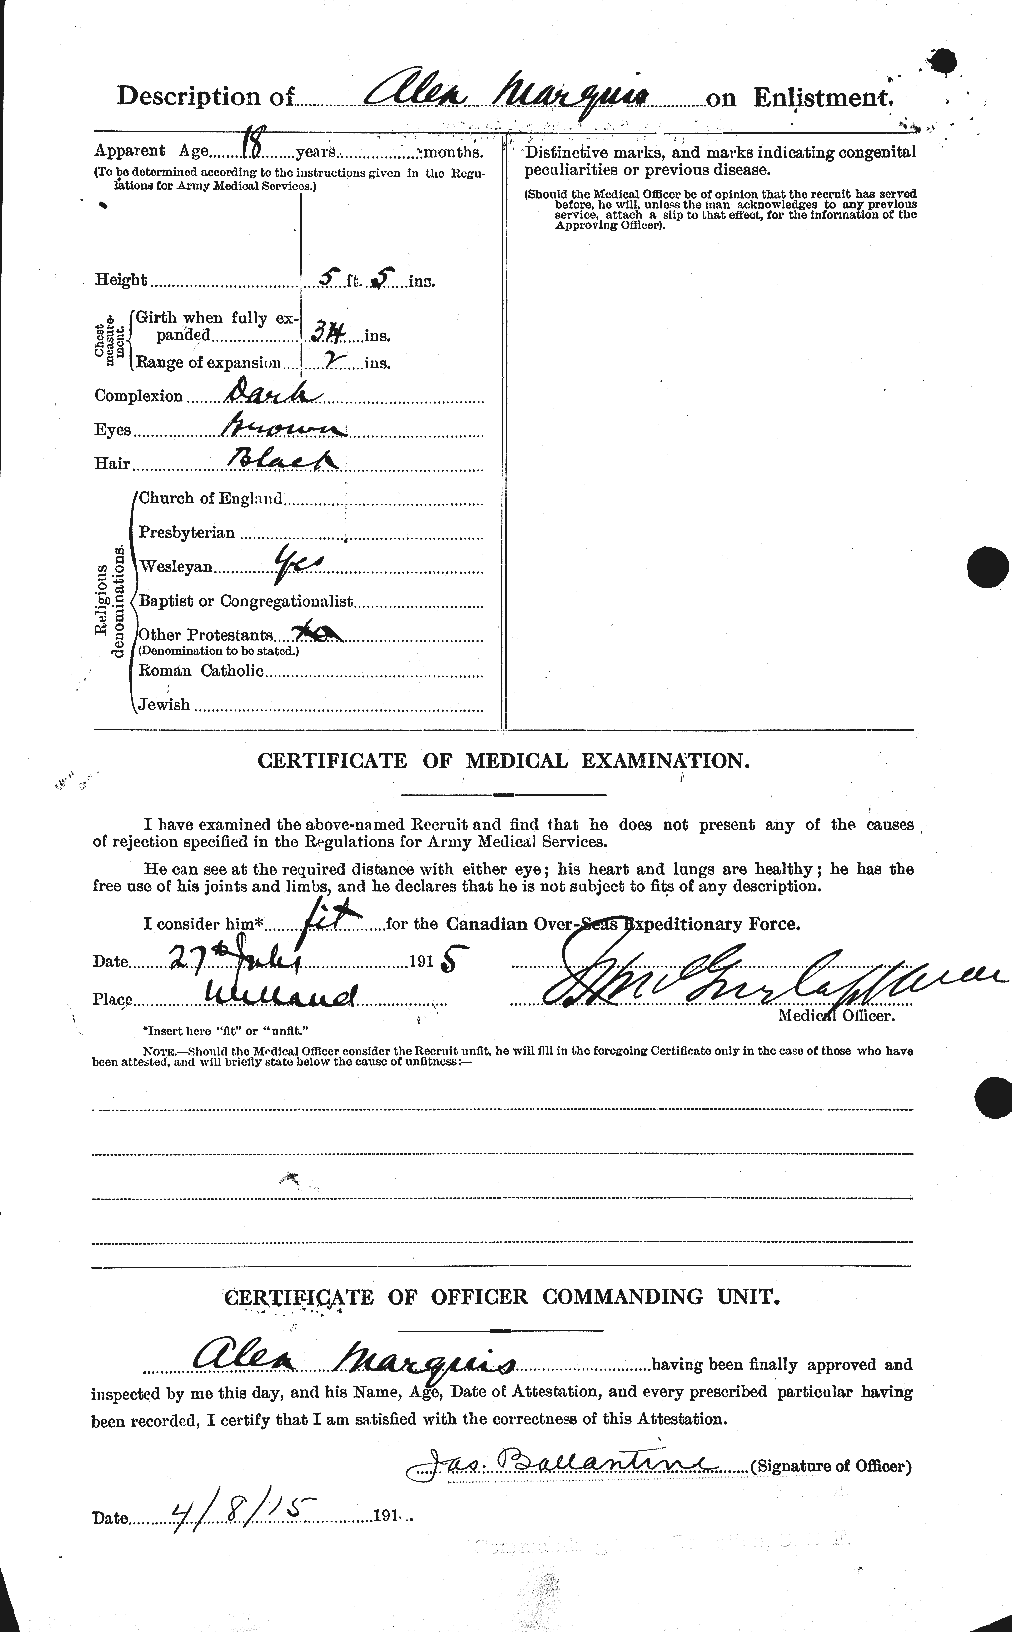 Description of Alex Marquis on Enlistment.
Apparent Age 18 years months.
(To be determined according to the instructions given in the Regu-
lations for Army Medical Services.)
Height 5 ft. 5 ins.
Chest measure-ment.
Girth when fully ex-
panded 34 ins.
Range of expansion 2 ins.
Complexion Dark
Eyes Brown
Hair Black
Religious denominations.
Church of England
Presbyterian
Wesleyan Yes
Baptist or Congregationalist
Other Protestants
(Denomination to be stated.)
Roman Catholic
Jewish
Distinctive marks, and marks indicating congenital
peculiarities or previous disease.
(Should the Medical Officer be of opinion that the recruit has served
before, he will, unless the man acknowledges to any previous
service, attach a slip to that effect, for the information of the
Approving Officer).
CERTIFICATE OF MEDICAL EXAMINATION.
I have examined the above-named Recruit and find that he does not present any of the causes
of rejection specified in the Regulations for Army Medical Services.
He can see at the required distance with either eye; his heart and lungs are healthy; he has the
free use of his joints and limbs, and he declares that he is not subject to fits of any description.
I consider him* fit for the Canadian Over-Seas Expeditionary Force.
Date 27th July 1915
Place Welland
Medical Officer.
*Insert here "fit" or "unfit."
NOTE.—Should the Medical Officer consider the Recruit unfit, he will fill in the foregoing Certificate only in the case of those who have
been attested, and will briefly state below the cause of unfitness:—
CERTIFICATE OF OFFICER COMMANDING UNIT.
Alex Marquis having been finally approved and
inspected by me this day, and his Name, Age, Date of Attestation, and every prescribed particular having
been recorded, I certify that I am satisfied with the correctness of this Attestation.
Jas. Ballantine (Signature of Officer)
Date 4/8/15 191